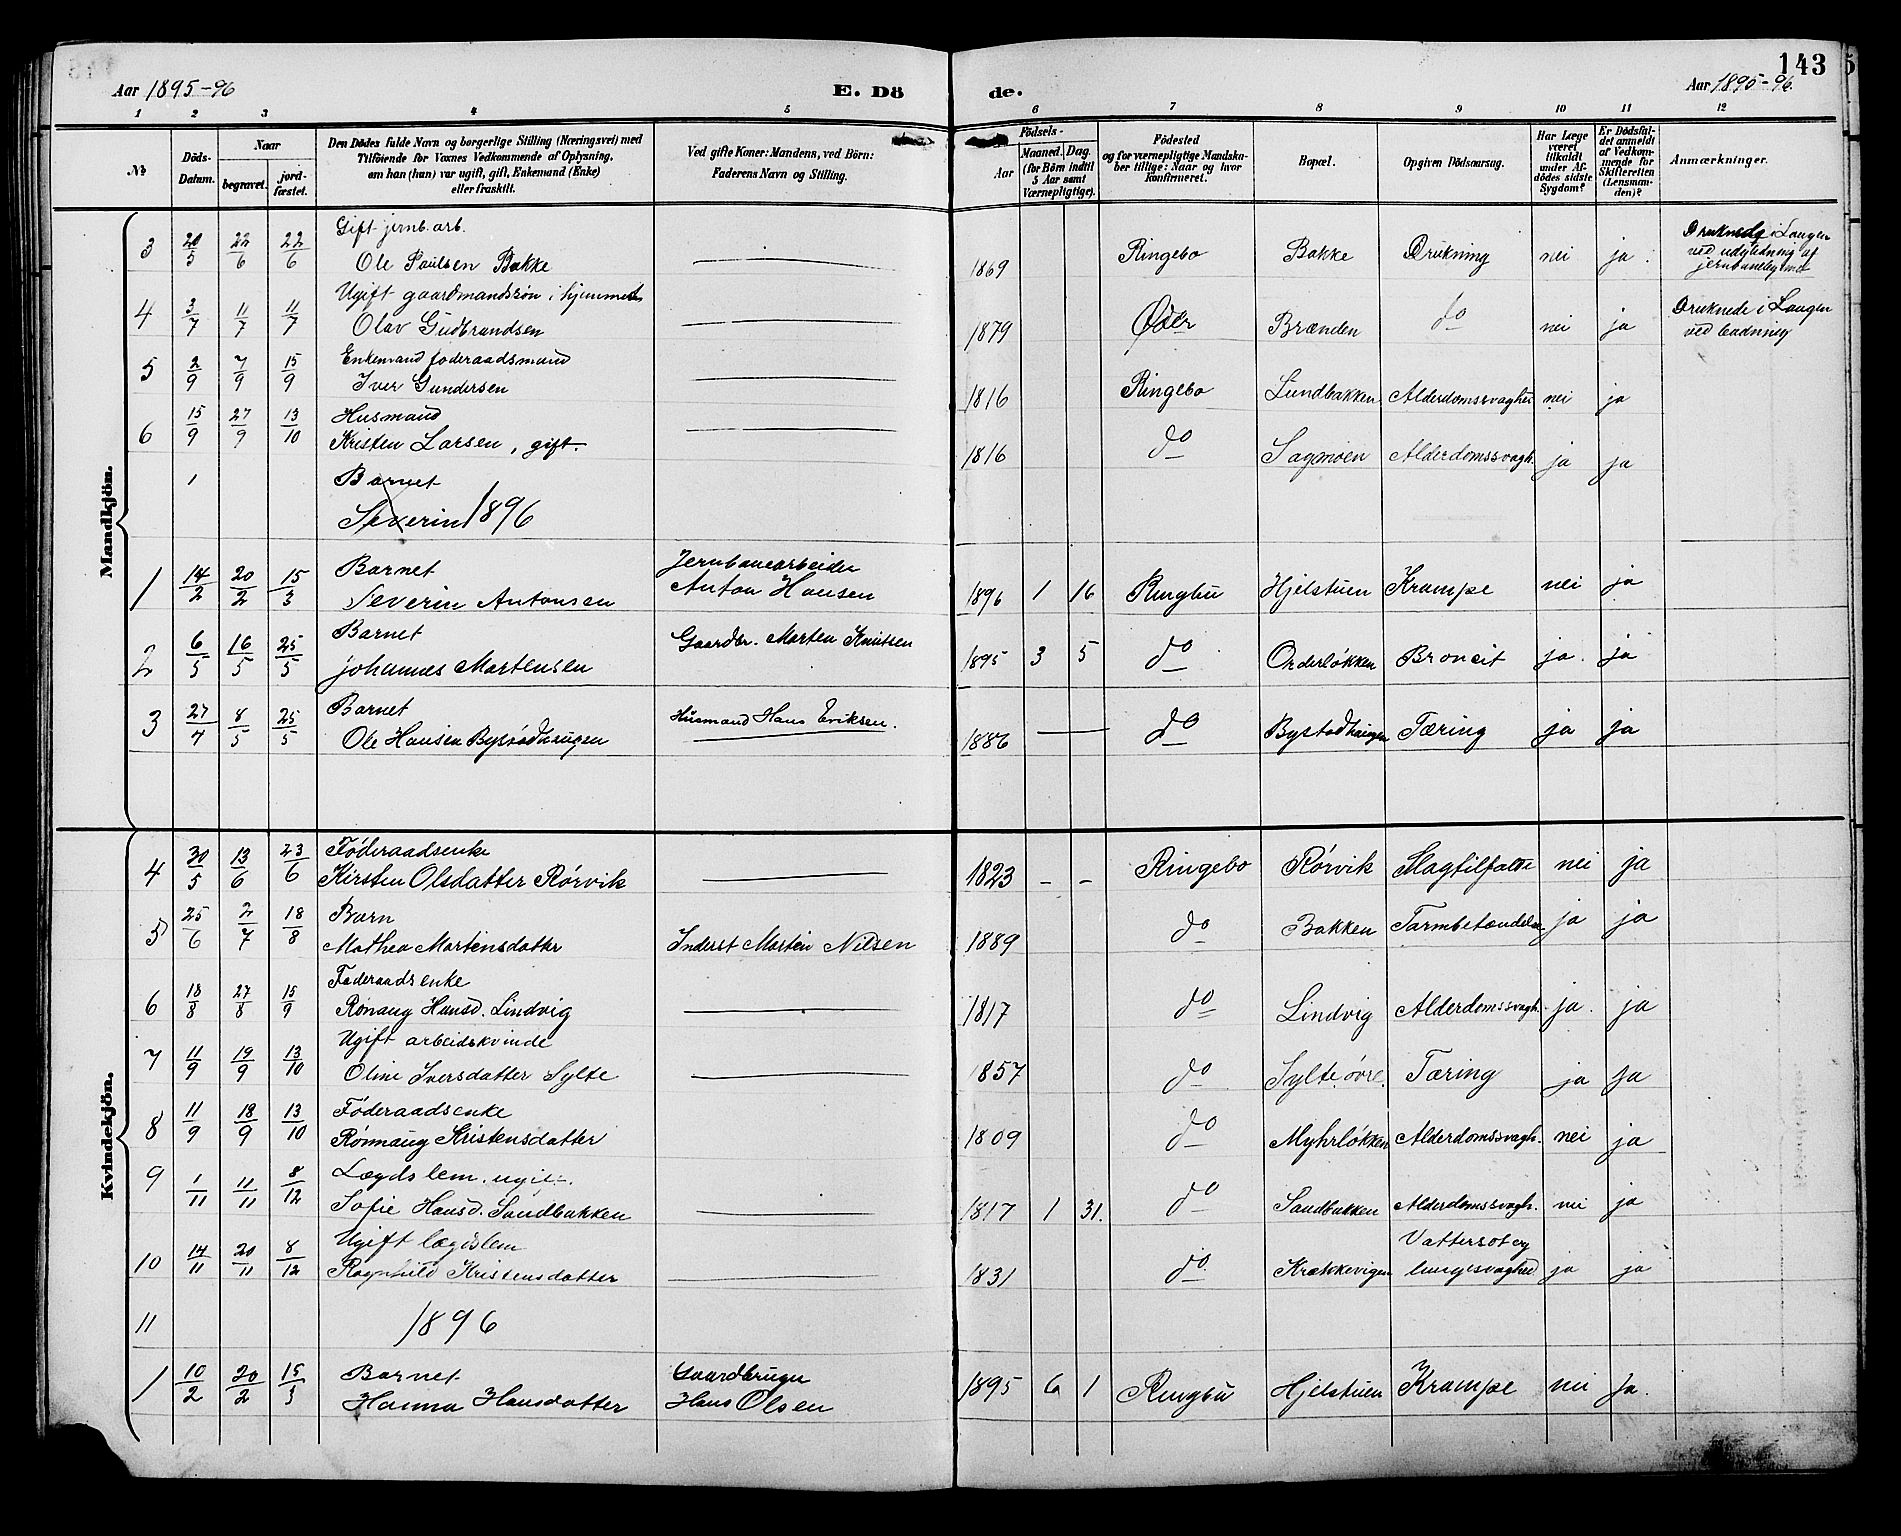 143
Aar 1895-96
E. Dö
de.
Aar 1895-96.
1 2 3 4 5 6 7 8 9 10 11 12
№
Döds-Datum.
Naar
begravet.
jord-fæstet.
Den Dödes fulde Navn og borgerlige Stilling (Næringsvei) med
Tilföiende for Voxnes Vedkommende af Oplysning,
om han (hun) var ugift, gift, Enkemand (Enke)
eller fraskilt.
Ved gifte Koner: Mandens, ved Börn:
Faderens Navn og Stilling.
Födsels-
Aar
Maaned. Dag.
(for Börn indtil
5 Aar samt
Værnepligtige).
Födested
og for værnepligtige Mandska-
ber tillige: Naar og hvor
konfirmeret.
Bopæl.
Opgiven Dödsaarsag.
Har Læge
været
tilkaldt
under Af-
dödes sidste
Sygdom?
Er Dödsfal-
det anmeldt
af Vedkom-
mende for
Skifteretten
(Lensman-
den)?
Anmærkninger.
Mandkjön.
Gift jernb. arb.
3 20/5 22/6 22/6 Ole Paulsen Bakke 1869 Ringebo Bakke Drukning nei ja Druknede i Laugen
ved udglidning af
Ugift gaardmandssön i hjemmet
4 3/7 11/7 11/7 Olav Gudbrandsen 1879 Öier Brænden do nei ja Druknede i Laugen
ved badning
Enkemand föderaadsmand
5 2/9 7/9 15/9 Iver Gundersen 1816 Ringebo Lundbakken Alderdomssvaghed nei ja
Husmand
6 15/9 27/9 13/10 Kristen Larsen, gift. 1816 do Sagmoen Alderdomssvagh. ja ja
Barnet
Severin 1896
Barnet Jernbanearbeider
1 14/2 20/2 15/3 Severin Antonsen Anton Hansen 1896 1 16 Ringbu Hjelstuen Krampe nei ja
Barnet
2 6/5 16/5 25/5 Johannes Martensen Gaardbr. Morten Knutsen 1895 3 5 do Orderløkken Broncit ja. ja
Barnet
3 27/4 8/5 25/5 Ole Hansen Bystødhaugen Husmand Hans Eriksen. 1886 do Bystødhaugen Tæring ja ja
Kvindekjön.
Føderaadsenke
4 30/5 13/6 23/6 Kirsten Olsdatter Rørvik 1823 - - Ringebo Rørvik Slagtilfælde nei ja
Barn
5 25/6 2/7 18/8 Mathea Martinsdatter Inderst Martin Nilsen 1889 do Bakken Tarmbetændelse ja ja
Føderaadsenke
6 18/8 27/8 15/9 Rönaug Hansd. Lindvig 1817 do Lindvig Alderdomssvagh. ja. ja
Ugift arbeidskvinde
7 11/9 19/9 13/10 Oline Iversdatter Sylte 1857 do Sylte øvre Tæring ja ja
Føderaadsenke
8 11/9 18/9 13/10 Rønnaug Kristensdatter 1809 do Myhrløkken Alderdomssvagh. nei ja
Lægdslem. ugift.
9 1/11 11/11 8/12 Sofie Hansd. Sandbakken 1817 1 31. do Sandbakken Alderdomssvagh. nei ja
Ugift lægdslem Vattersot og
10 14/11 20/11 8/12 Ragnhild Kristensdatter 1831 do Krækkevigen lungesvaghed ja ja
11 1896
Barnet Gaardbruger
1 10/2 20/2 15/3 Hanna Hansdatter Hans Olsen 1895 6 1 Ringbu Hjelstuen Krampe nei ja.